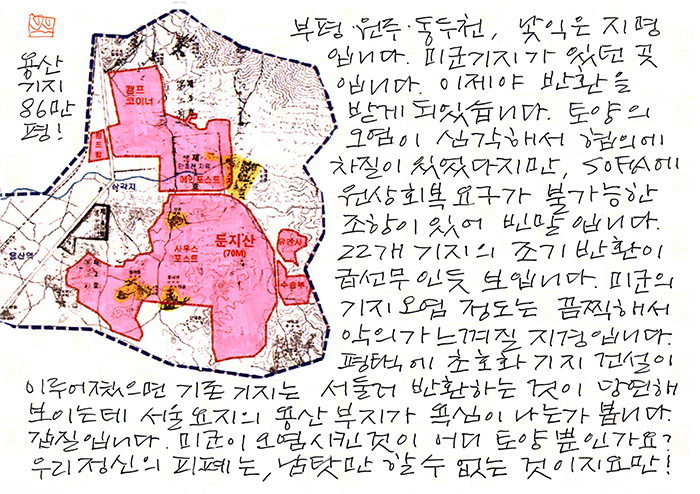 부평·원주·동두천, 낯익은 지명
입니다. 미군기지가 있던 곳
입니다. 이제야 반환을
받게 되었습니다. 토양의
오염이 심각해서 협의에
차질이 있었다지만, SOFA에
원상회복 요구가 불가능한
조항이 있어 빈말입니다.
22개 기지의 조기 반환이
급선무인듯 보입니다. 미군의
기지오염 정도는 끔찍해서
악의가 느껴질 지경입니다.
평택에 초호화 기지 건설이
이루어졌으면 기존 기지는 서둘러 반환하는 것이 당연해
보이는데 서울 요지의 용산 부지가 욕심이 나는가 봅니다.
갑질입니다. 미군이 오염시킨 것이 어디 토양 뿐인가요?
우리 정신의 피폐는, 남탓만 할 수 없는 것이지요만!
용산
기지
86만
평!
캠프
코이너
메인포스트
삼각지
용산역
사우스
포스트
둔지산
(70M)
유엔사
수송부